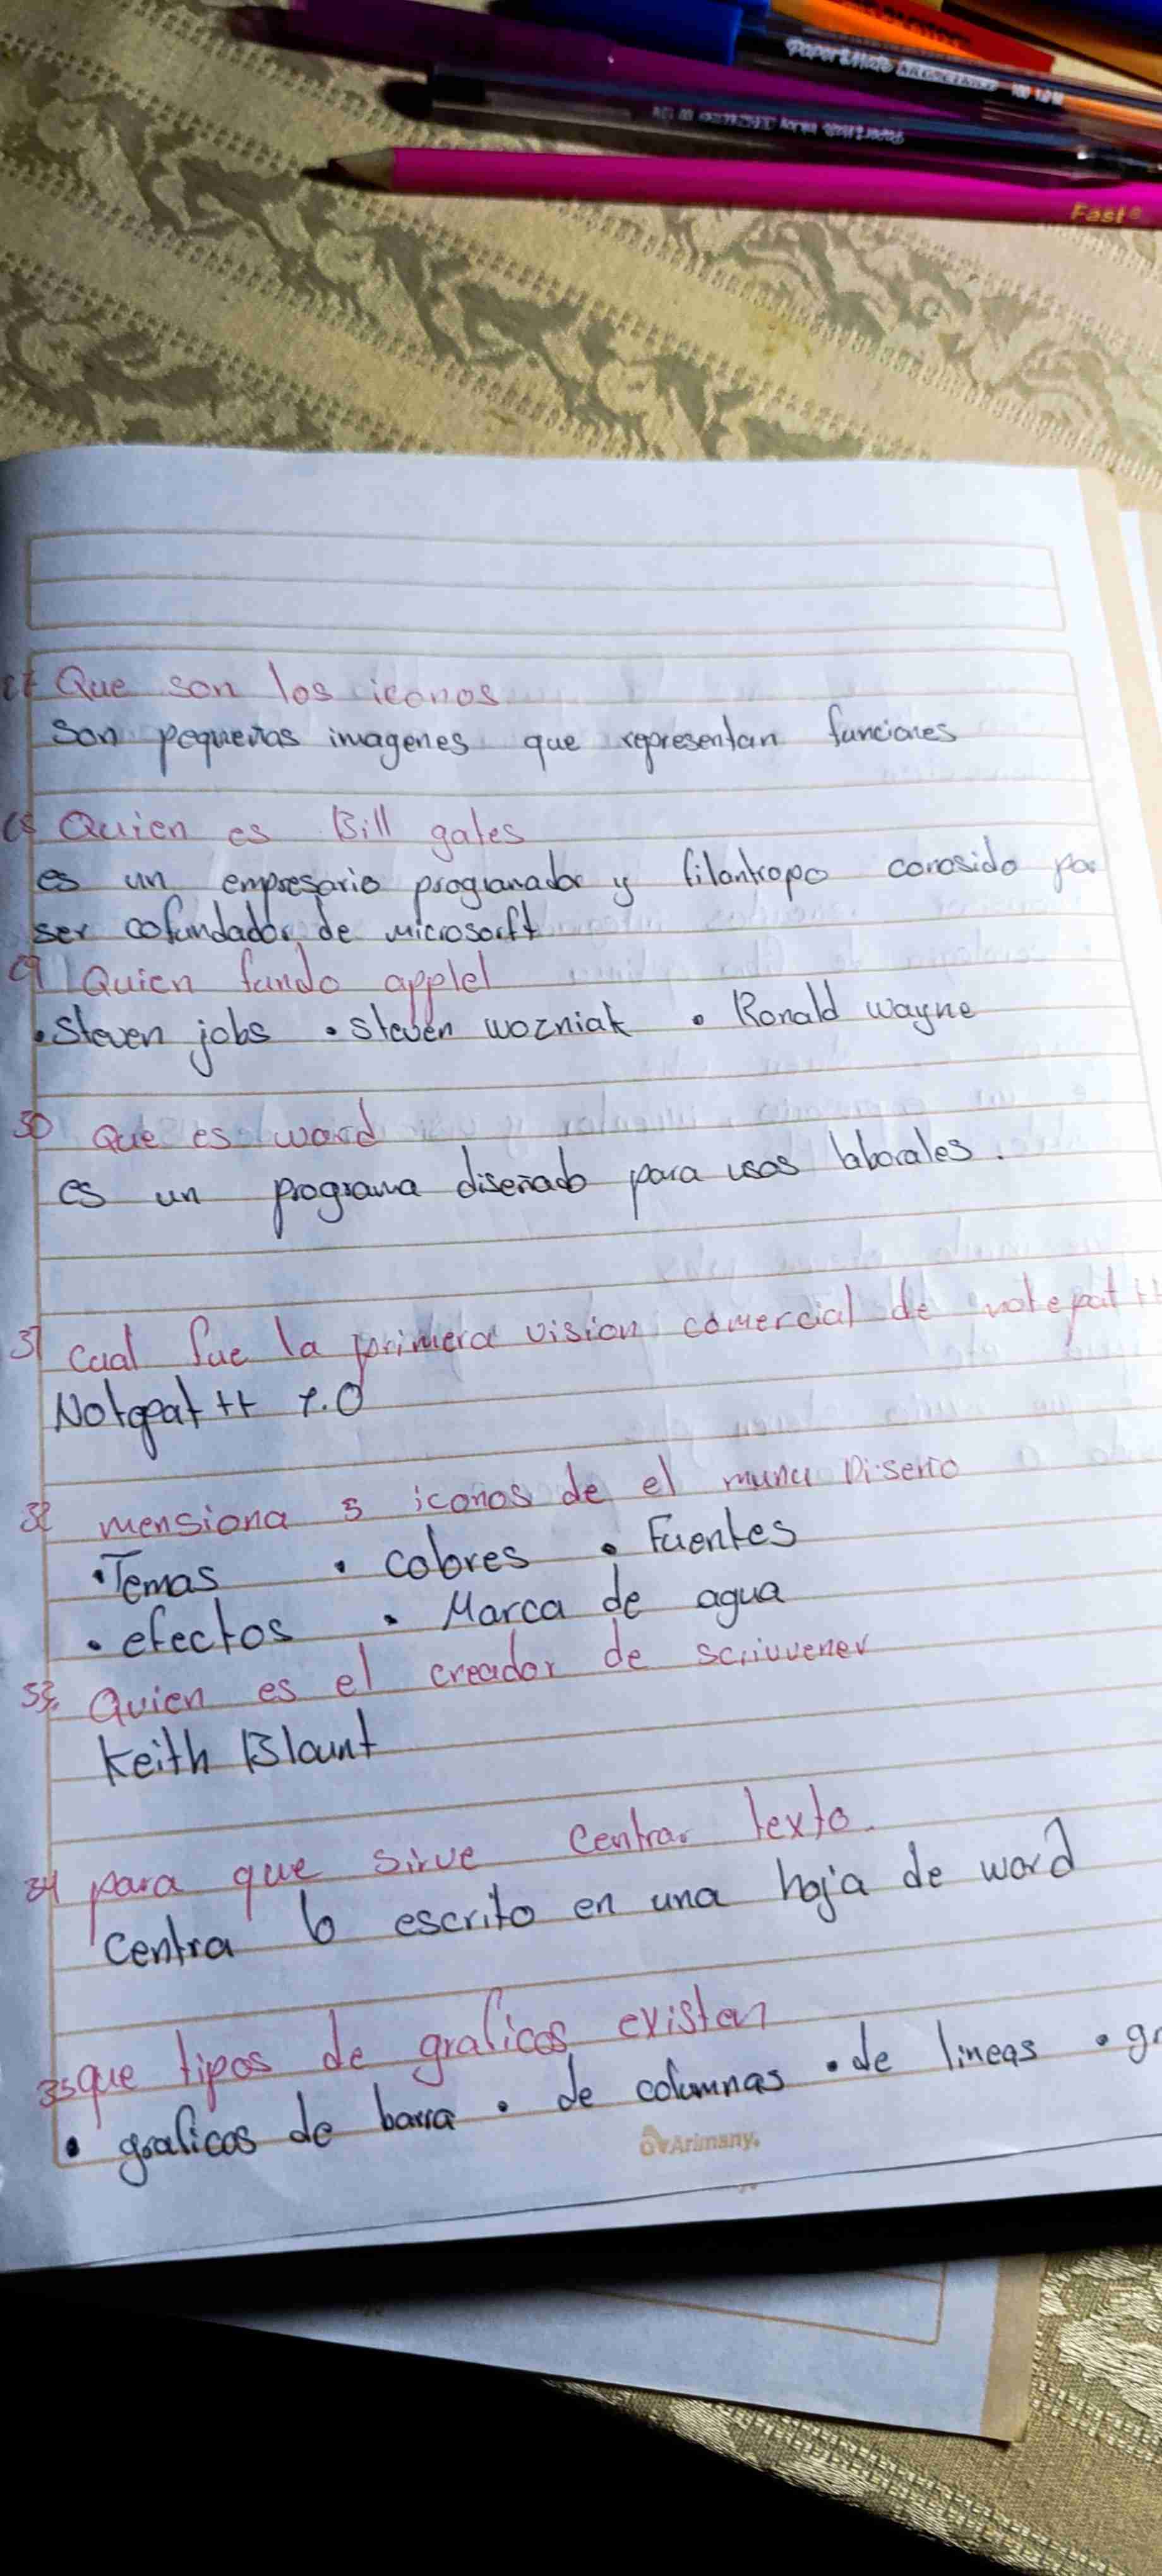 PaperMate KILOMETRICO 100 1.0 M
Fast
27 Que son los iconos
son pequeñas imagenes que representan funciones
28 Quien es Bill gates
es un empresario programador y filantropo conosido por
ser cofundador de microsorft
29 Quien fundo applel
• Steven jobs • steven wozniak • Ronald wayne
30 que es word
es un programa diseñado para usos laborales.
31 cual fue la primera vision comercial de notepat ++
Notepat ++ 1.0
32 mensiona 5 iconos de el menu Diseño
• Temas • colores • Fuentes
• efectos • Marca de agua
33 Quien es el creador de scriuvener
Keith Blount
34 para que sirve Centrar texto.
Centra lo escrito en una hoja de word
35 que tipos de graficos existen
• graficos de barra • de columnas • de lineas • gr
Arimany.